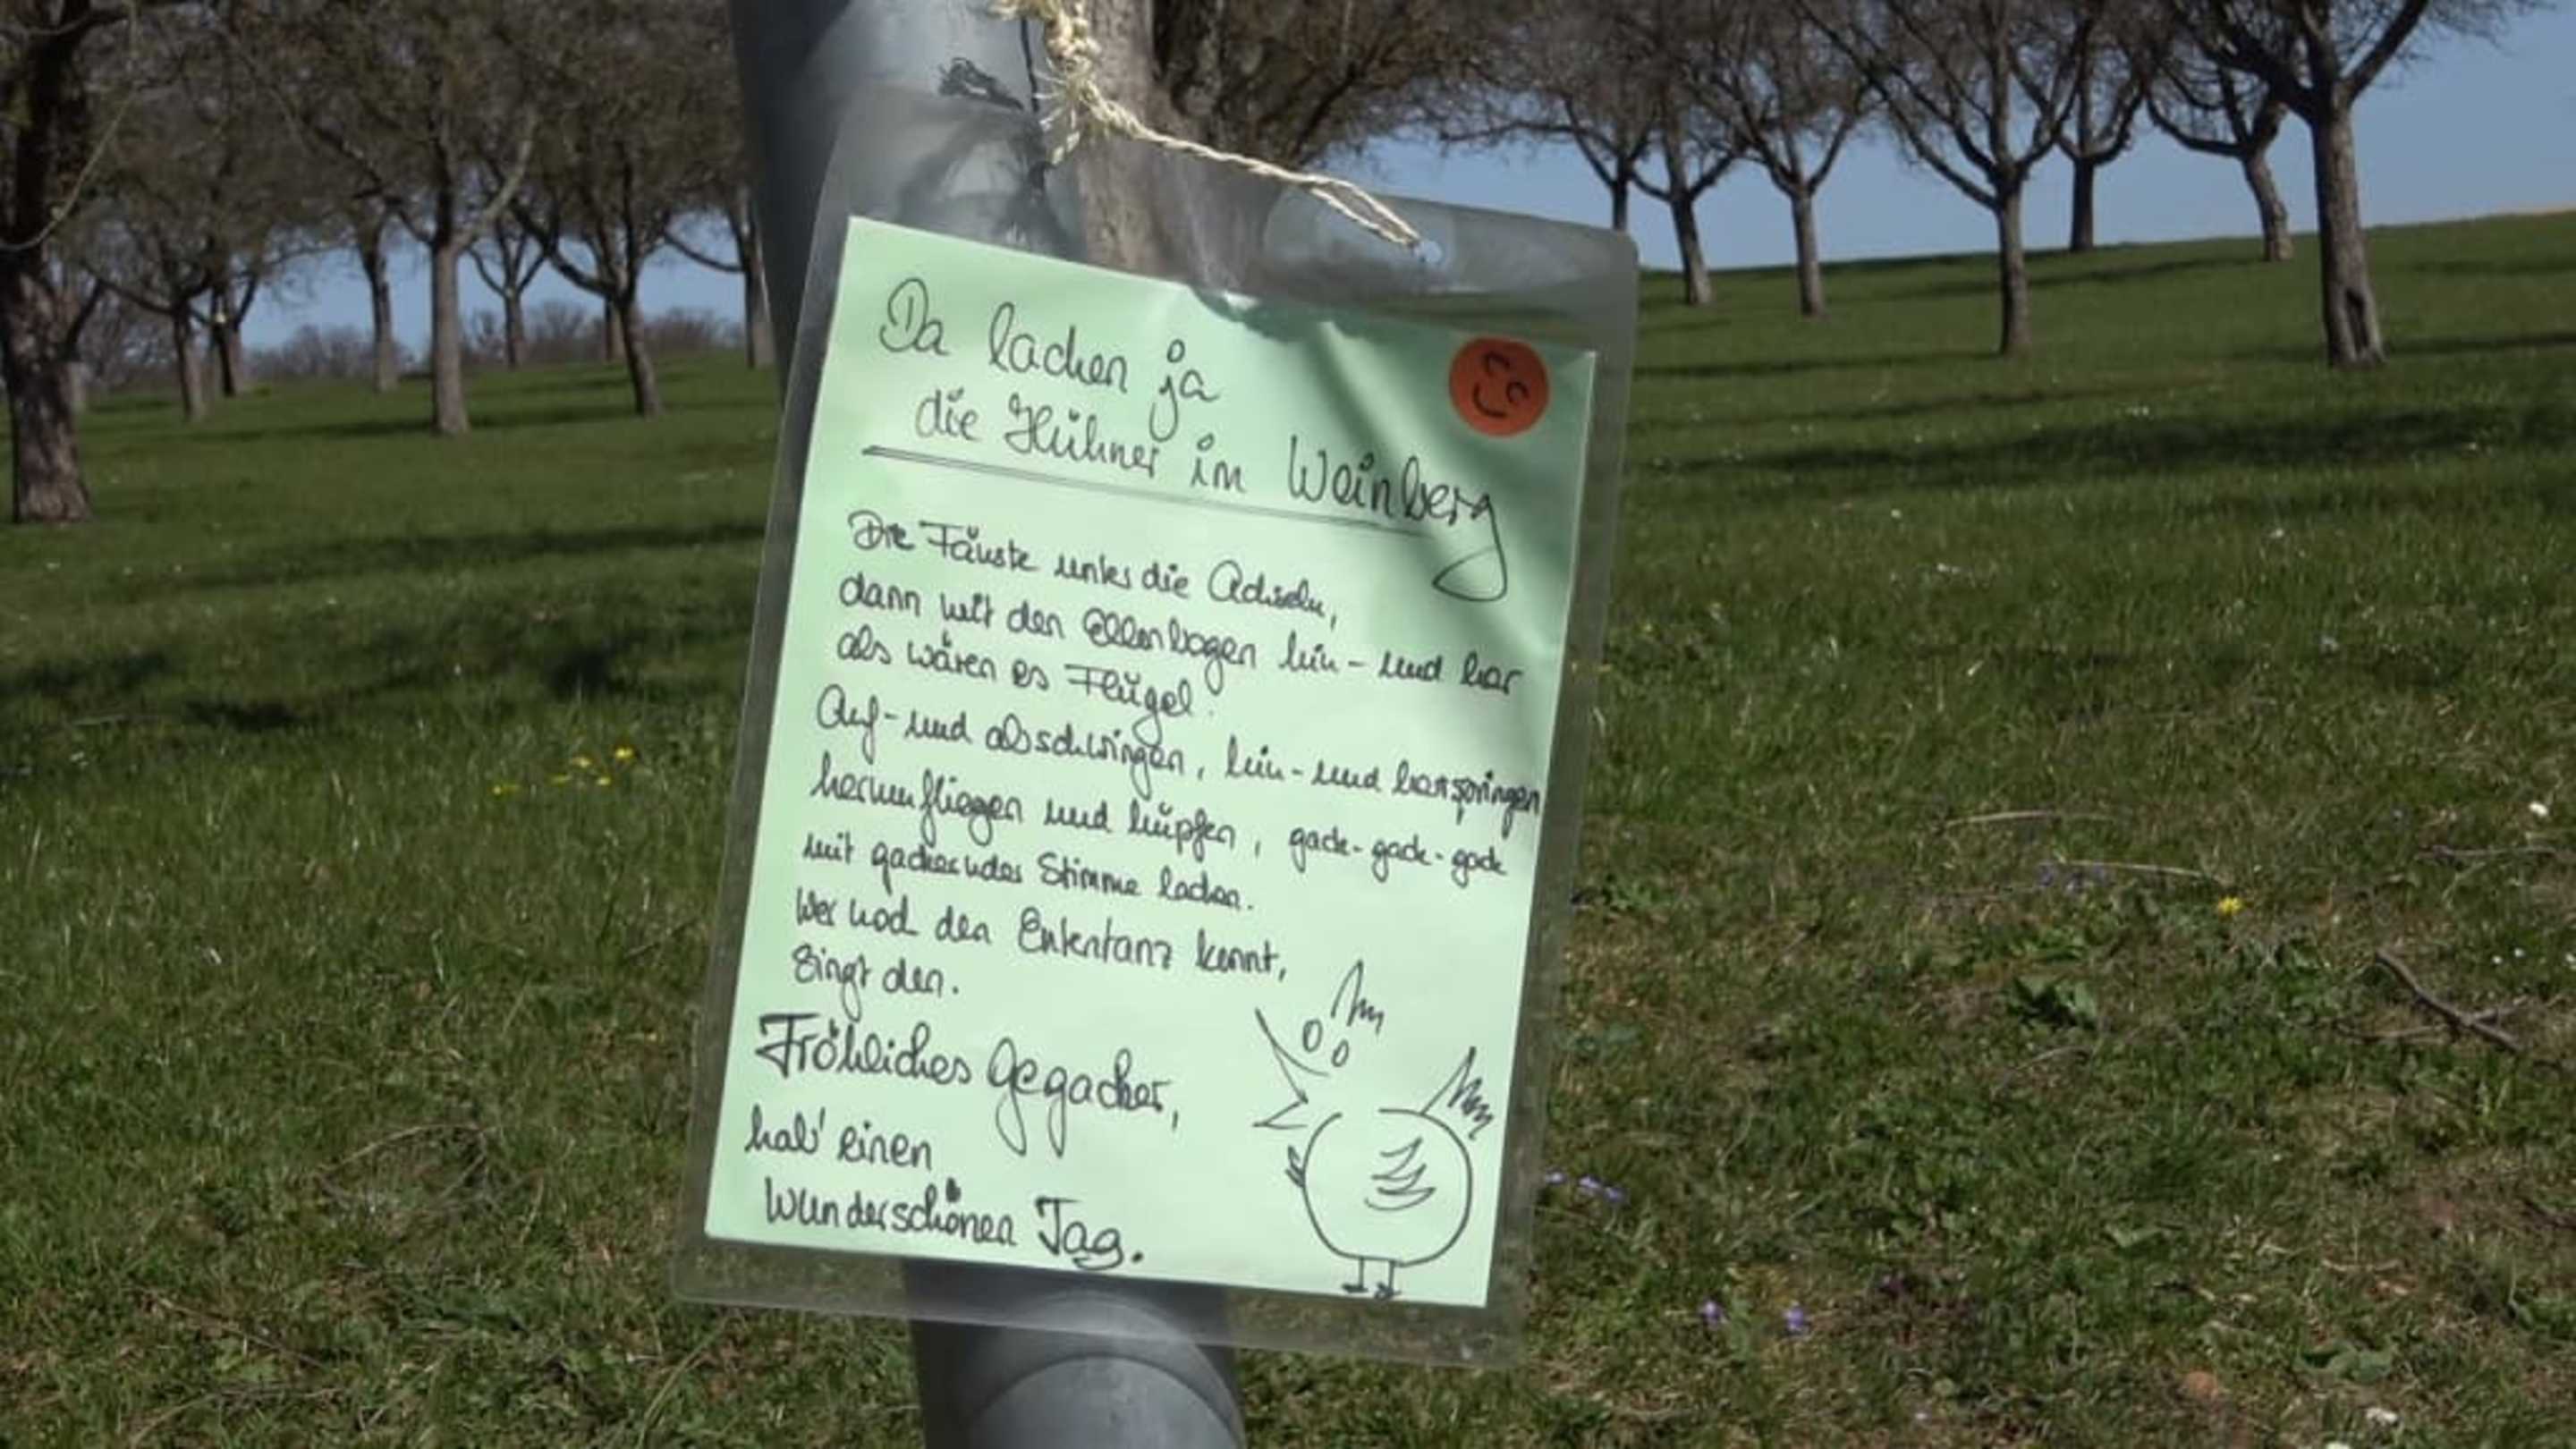 Da lachen ja
die Hühner im Weinberg
Die Fäuste unter die Achseln,
dann mit den Ellenbogen hin- und her
als wären es Flügel.
Auf- und abschwingen, hin- und herspringen
herumfliegen und hüpfen, gack-gack-gack
mit gackernder Stimme lachen.
Wer noch den Ententanz kennt,
singt den.
Fröhliches Gegacker,
hab' einen
wunderschönen Tag.